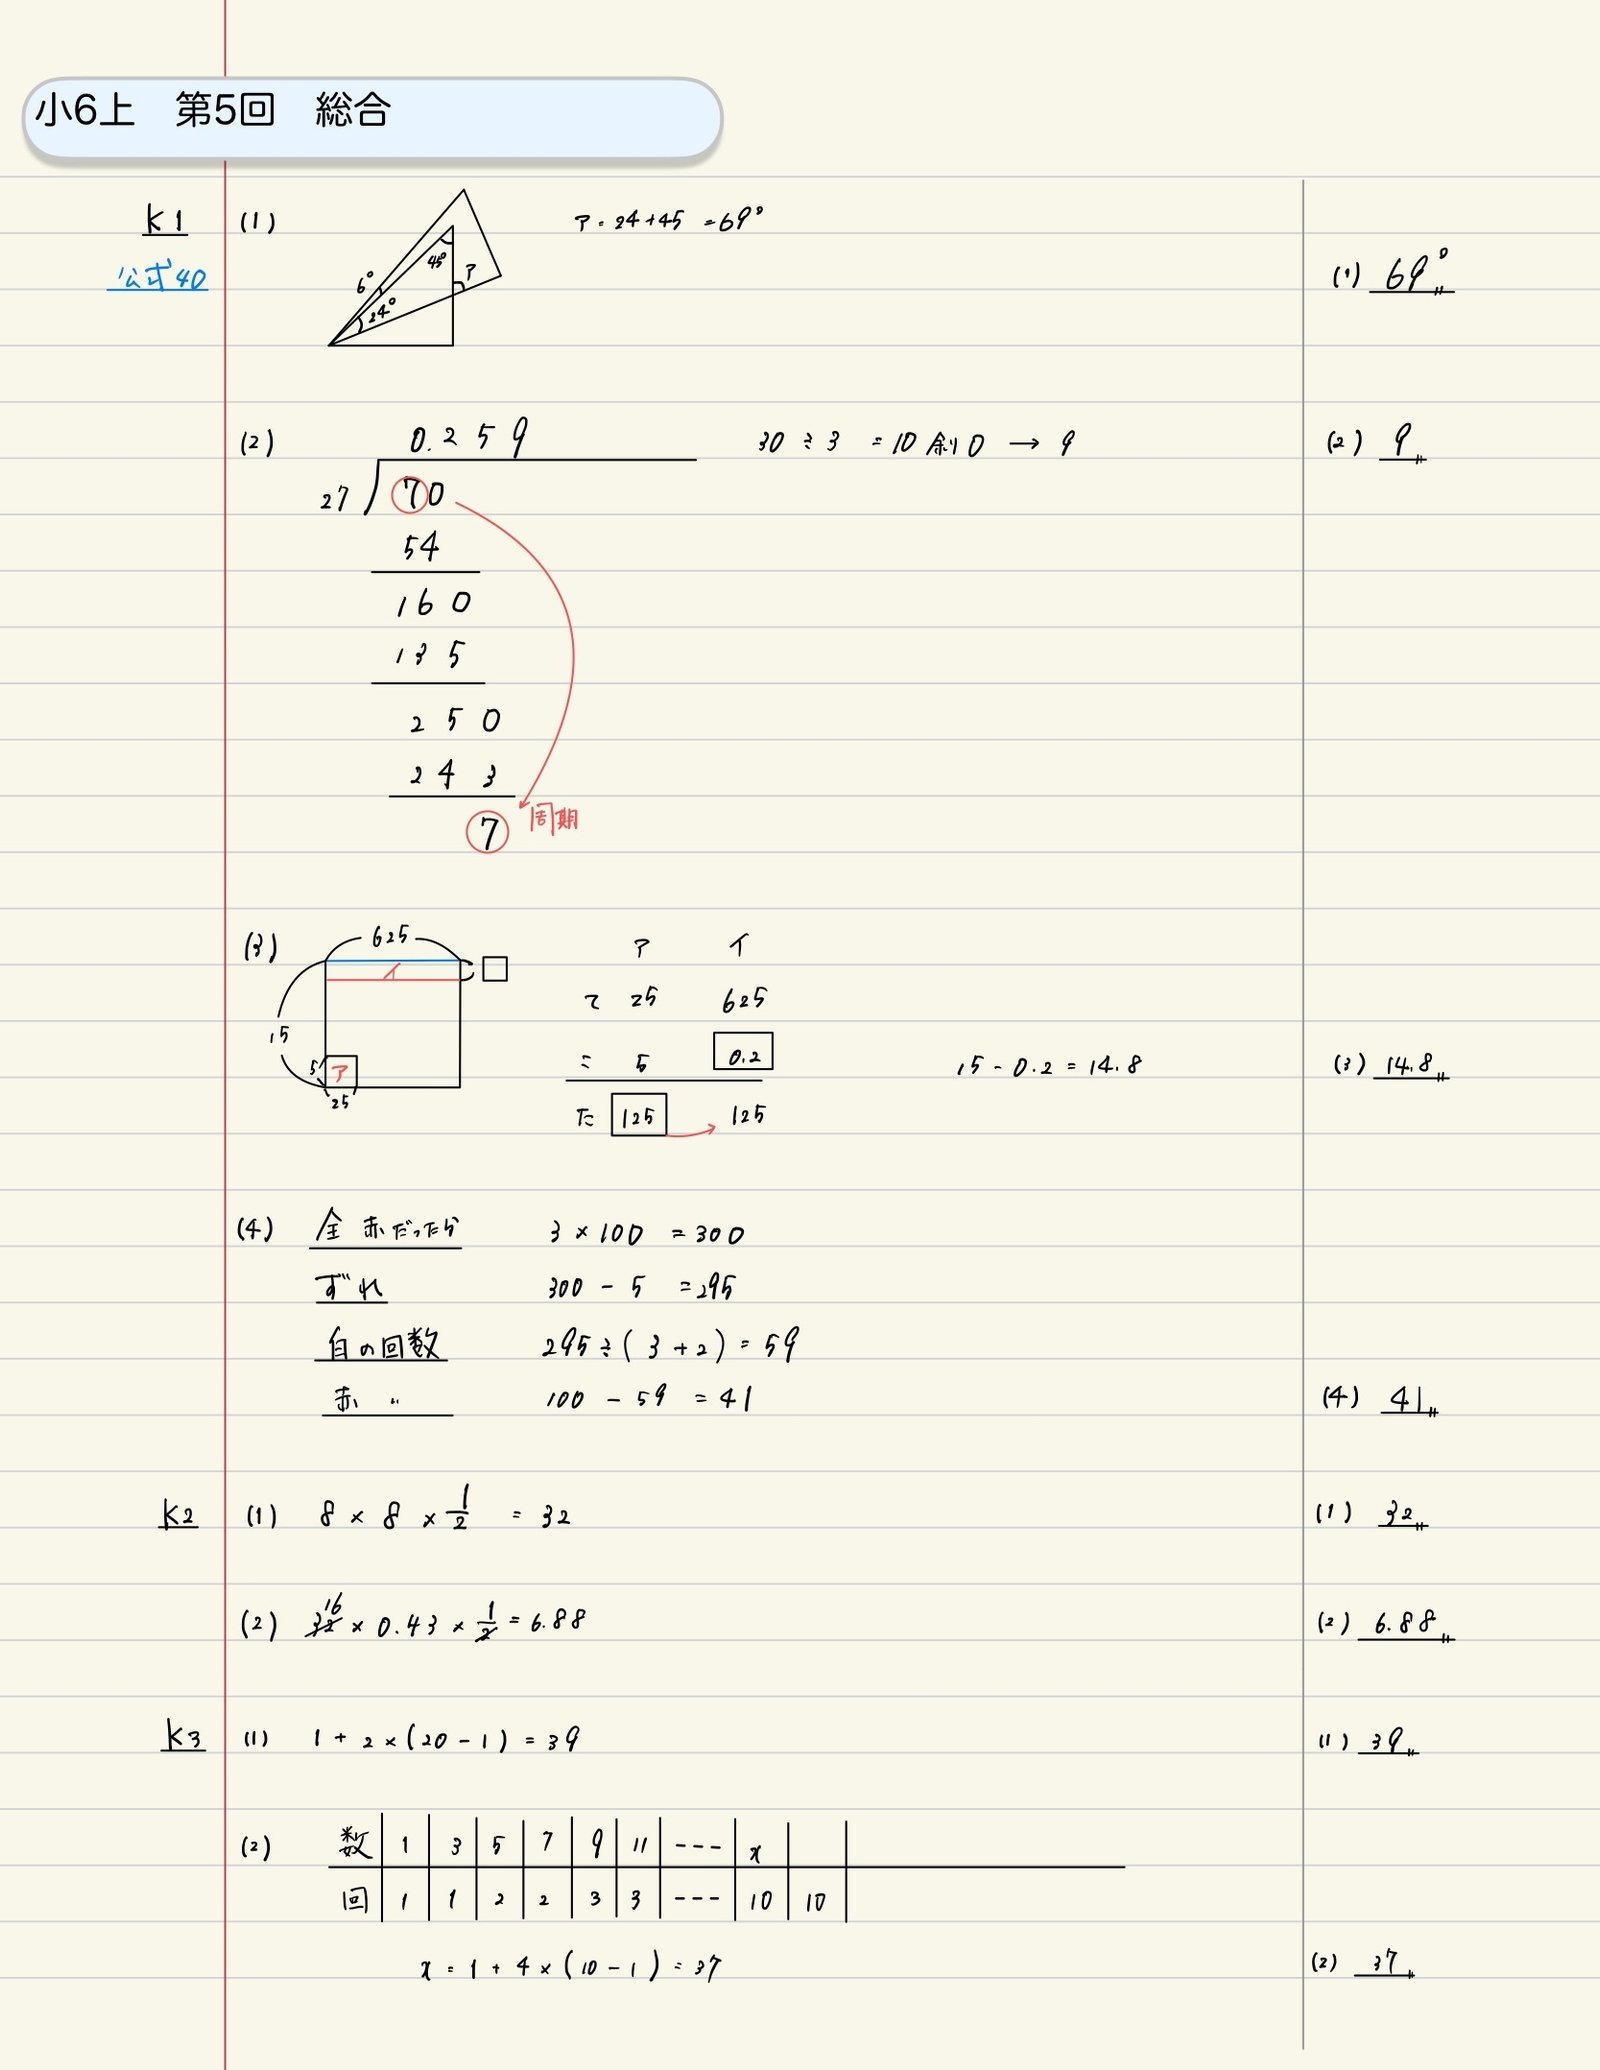 小6上　第5回　総合
K1 (1) ア = 24 + 45 = 69°
公式40
6° 24° 45° ア
(1) 69°
(2) 0.259 30 ÷ 3 = 10 余り 0 → 9 (2) 9
27 70
54
160
135
250
243
7 周期
(3) 625 ア イ
イ □
て 25 625
15
5 ア = 5 0.2 15 - 0.2 = 14.8 (3) 14.8
25
た 125 → 125
(4) 全 赤だったら 3 × 100 = 300
ずれ 300 - 5 = 295
白の回数 295 ÷ (3 + 2) = 59
赤 〃 100 - 59 = 41 (4) 41
K2 (1) 8 × 8 × 1/2 = 32 (1) 32
16
(2) 32 × 0.43 × 1/2 = 6.88 (2) 6.88
K3 (1) 1 + 2 × (20 - 1) = 39 (1) 39
(2) 数 1 3 5 7 9 11 --- x
回 1 1 2 2 3 3 --- 10 10
x = 1 + 4 × (10 - 1) = 37 (2) 37